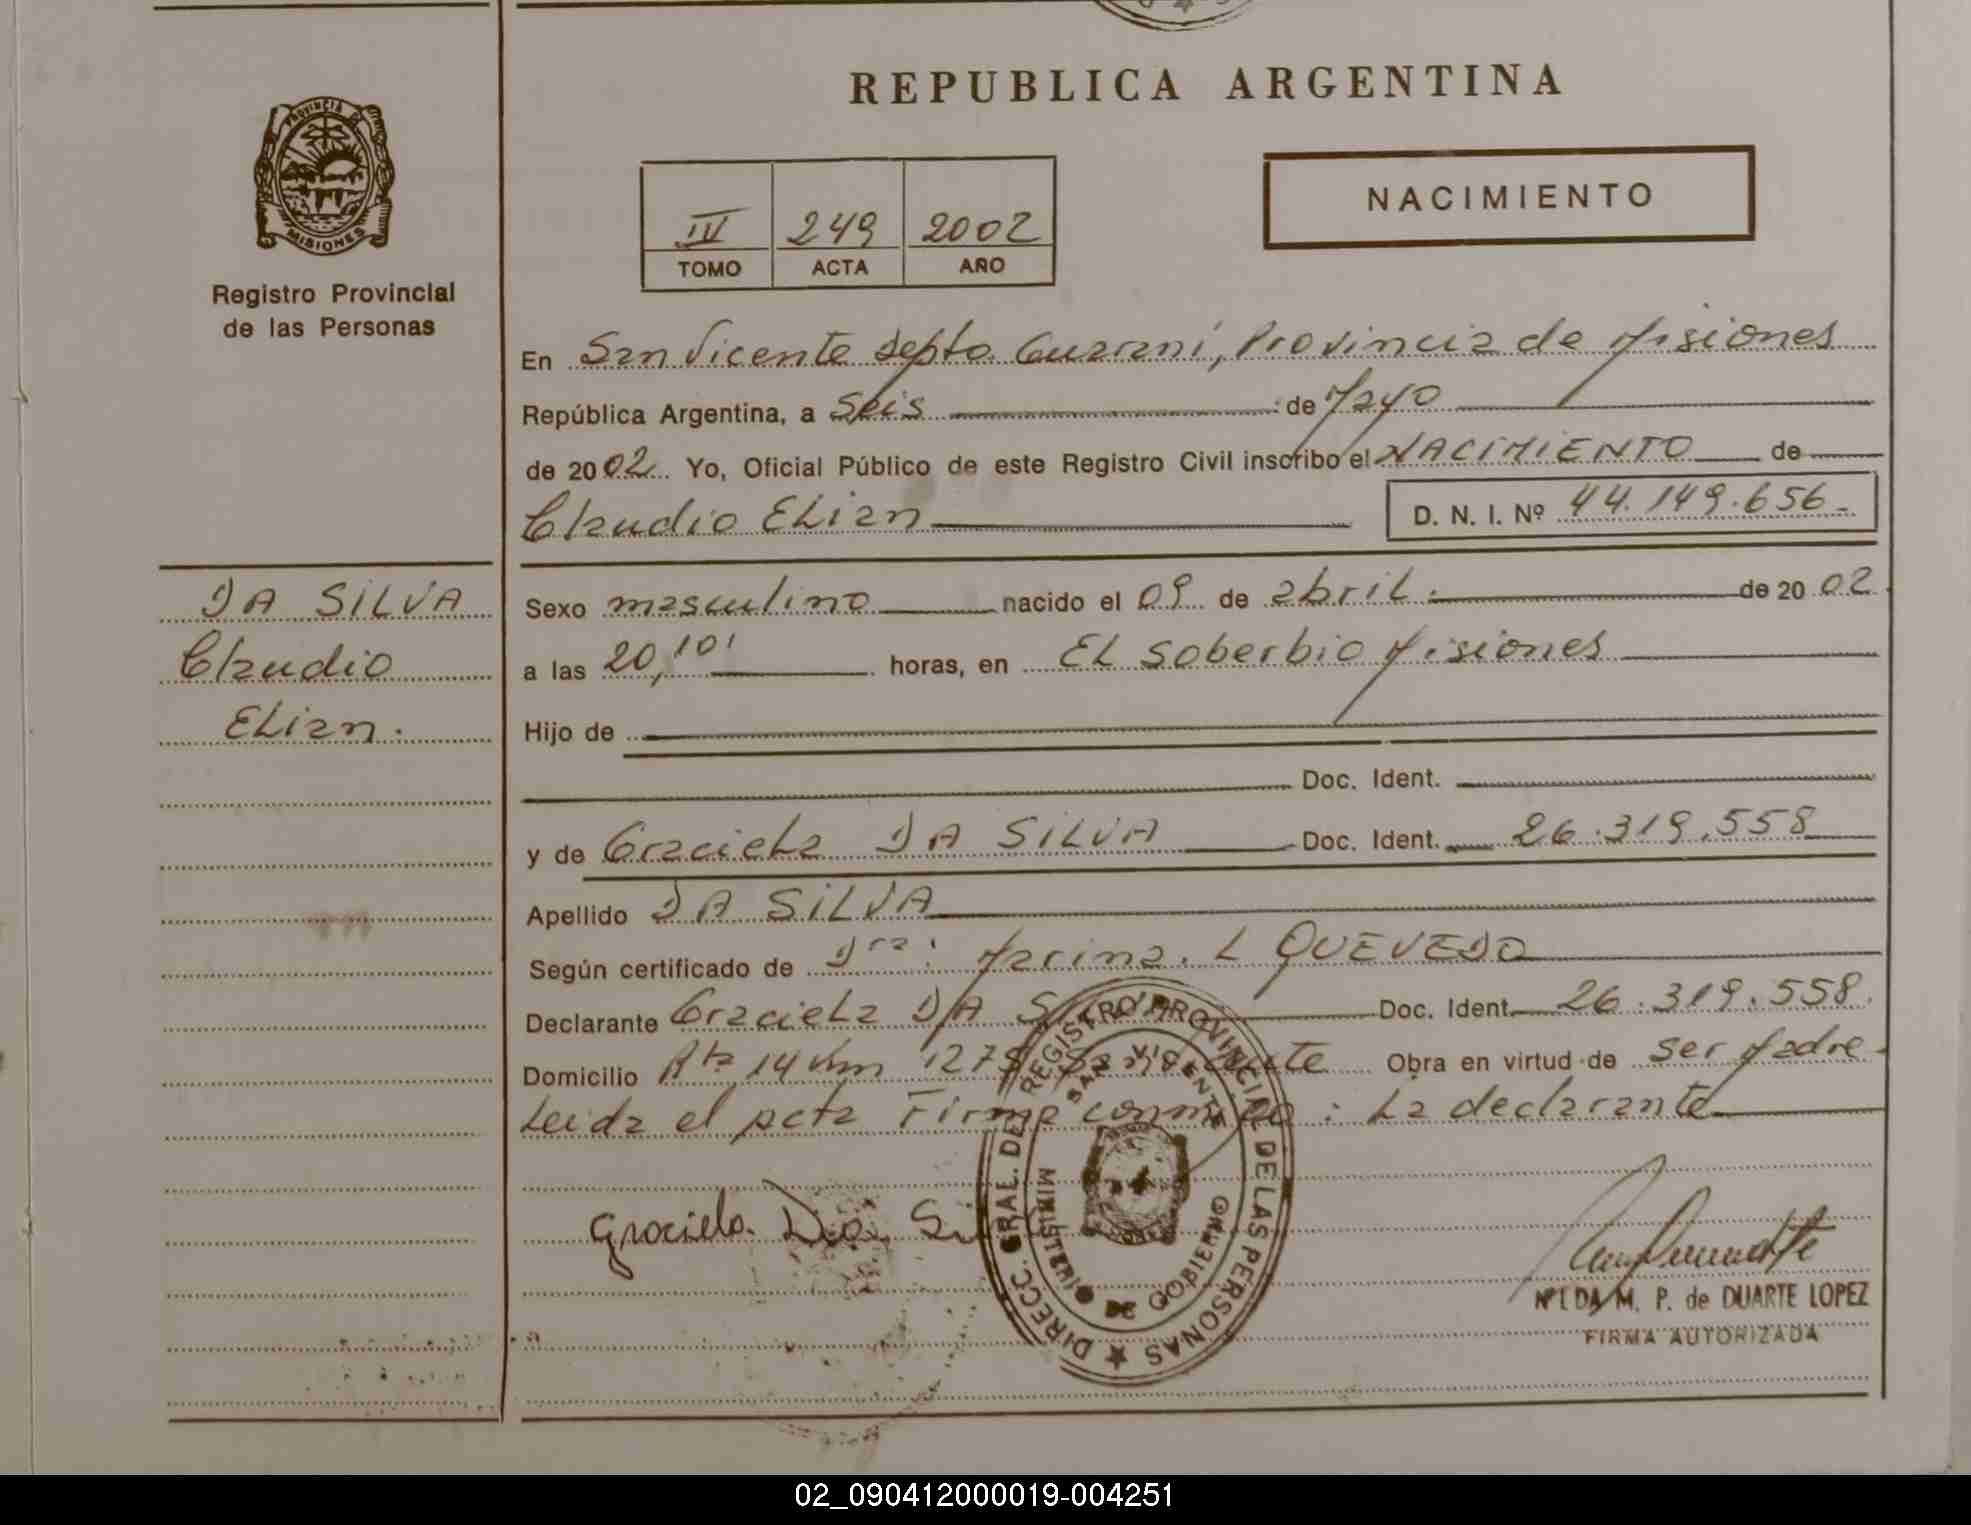 REPUBLICA ARGENTINA
PROVINCIA DE
MISIONES
Registro Provincial
de las Personas
IV 249 2002
TOMO ACTA AÑO
NACIMIENTO
En San Vicente Depto. Guaraní, Provincia de Misiones
República Argentina, a Seis de Mayo
de 2002 Yo, Oficial Público de este Registro Civil inscribo el NACIMIENTO de
Claudio ELian D. N. I. Nº 44.149.656
DA SILVA
Claudio
ELian.
Sexo masculino nacido el 09 de abril. de 2002
a las 20,10' horas, en EL Soberbio Misiones
Hijo de
Doc. Ident.
y de Graciela DA SILVA Doc. Ident. 26.319.558
Apellido DA SILVA
Según certificado de Dra. Marina. L QUEVEDO
Declarante Graciela DA S Doc. Ident. 26.319.558.
Domicilio Rta 14 km 1275 San Vicente Obra en virtud de ser Madre
Leida el acta Firma conmigo: La declarante
Graciela Da Sil
DIRECC. GRAL. DEL REGISTRO PROVINCIAL DE LAS PERSONAS
SAN VICENTE
MINISTERIO DE GOBIERNO
NELDA M. P. de DUARTE LOPEZ
FIRMA AUTORIZADA
02_090412000019-004251